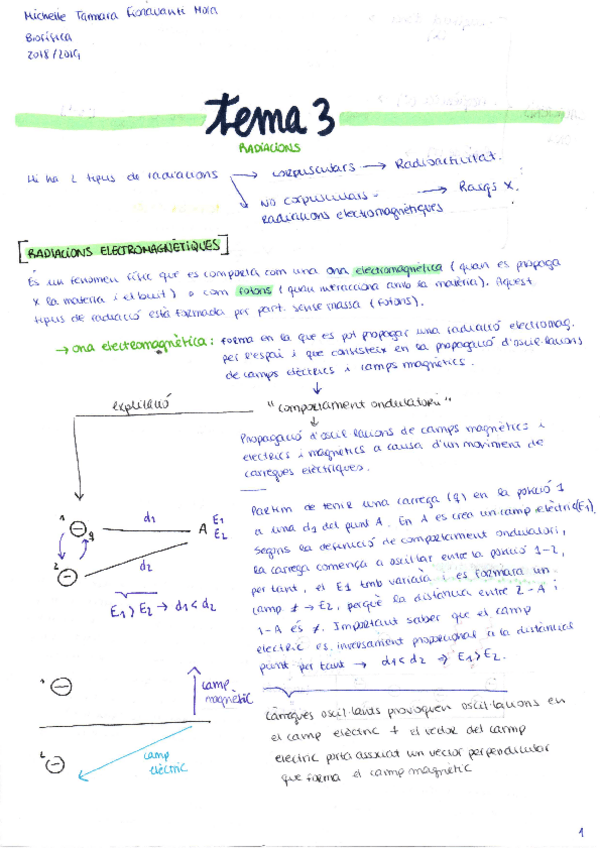 Michelle Tamara Fioravanti Mora
Biofísica
2018/2019
tema 3
RADIACIONS
Hi ha 2 tipus de radiacions → corpusculars → Radioactivitat.
→ NO corpusculars = → Raigs X.
Radiacions electromagnètiques
[RADIACIONS ELECTROMAGNÈTIQUES]
És un fenomen físic que es comporta com una ona electromagnètica (quan es propaga
x la matèria i el buit) o com fotons (quan interacciona amb la matèria). Aquest
tipus de radiació està formada per part. sense massa (fotons).
→ ona electromagnètica: forma en la que es pot propagar una radiació electromag.
per l'espai i que consisteix en la propagació d'oscil·lacions
de camps elèctrics i camps magnètics.
explicació
"comportament ondulatori"
Propagació d'oscil·lacions de camps magnètics i
electrics i magnetics a causa d'un moviment de
càrregues elèctriques.
Partim de tenir una carrega (q) en la posició 1
a una d1 del punt A. En A es crea un camp elèctric (E1).
Segons la definició de comportament ondulatori,
la carrega comença a oscil·lar entre la posició 1-2,
per tant, el E1 tmb variarà i es formarà un
camp ≠ → E2, perquè la distància entre 2-A i
1-A és ≠. Important saber que el camp
electric es inversament proporcional a la distància
punt per tant → d1 < d2 → E1 > E2.
1 ⊖ q d1 A E1
E2
2 ⊖ d2
E1 > E2 → d1 < d2
1 ⊖
camp
magnètic
2 ⊖
camp
elèctric
Càrregues oscil·lants provoquen oscil·lacions en
el camp elèctric + el vector del camp
elèctric porta associat un vector perpendicular
que forma el camp magnètic
1